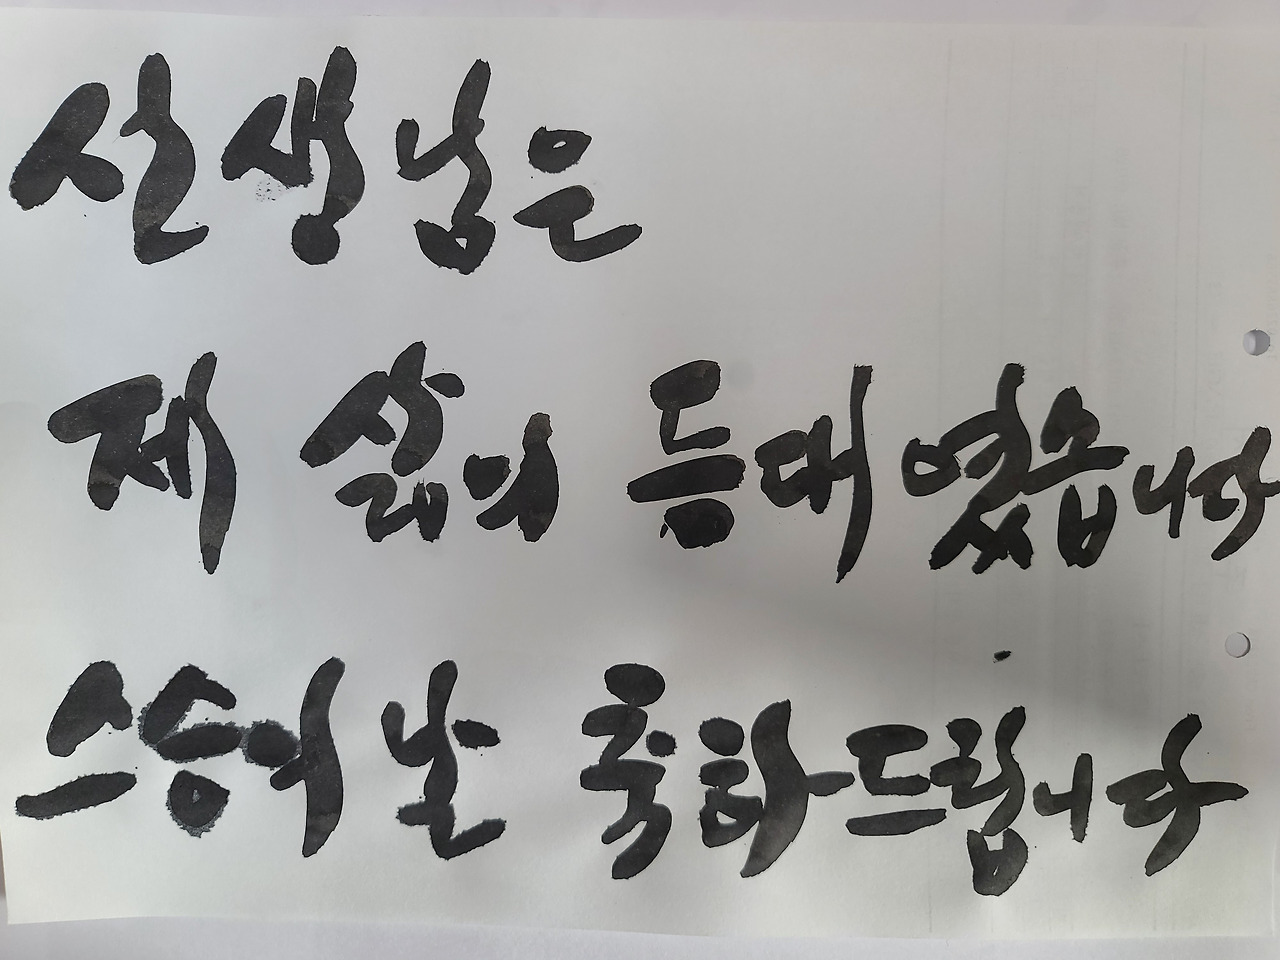 선생님은
제 삶의 등대였습니다
스승의 날 축하드립니다